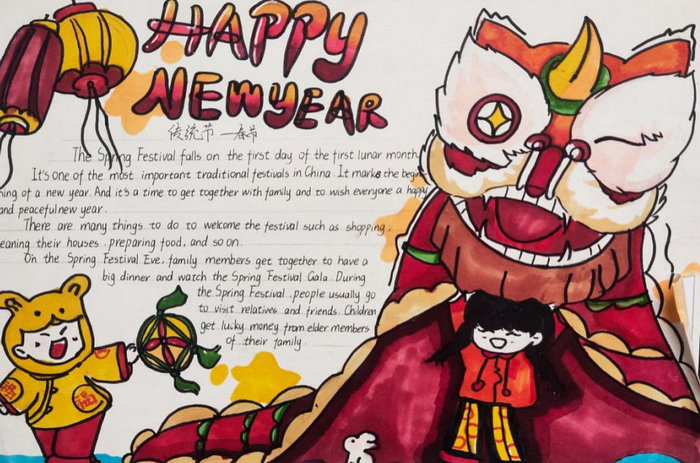 HAPPY
NEWYEAR
传统节—春节
The Spring Festival falls on the first day of the first lunar month.
It's one of the most important traditional festivals in China. It marks the begin
ning of a new year. And it's a time to get together with family and to wish everyone a happy
and peaceful new year.
There are many things to do to welcome the festival such as shopping,
eaning their houses, preparing food, and so on.
On the Spring Festival Eve, family members get together to have a
big dinner and watch the Spring Festival Gala. During
the Spring Festival, people usually go
to visit relatives and friends. Children
get lucky money from elder members
of their family.
福
福